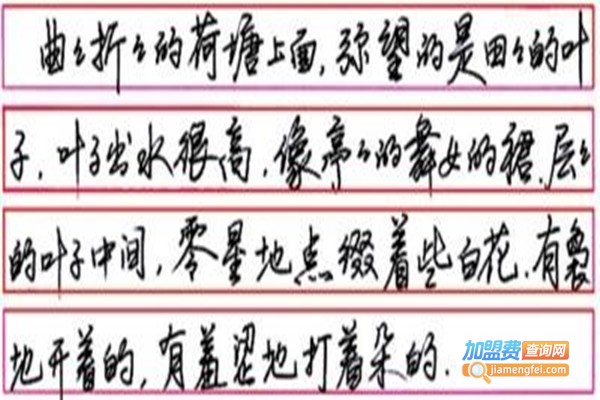 曲々折々的荷塘上面,弥望的是田々的叶
子,叶子出水很高,像亭々的舞女的裙.层々
的叶子中间,零星地点缀着些白花.有袅
地开着的,有羞涩地打着朵的.
加盟费查询网
jiamengfei.com